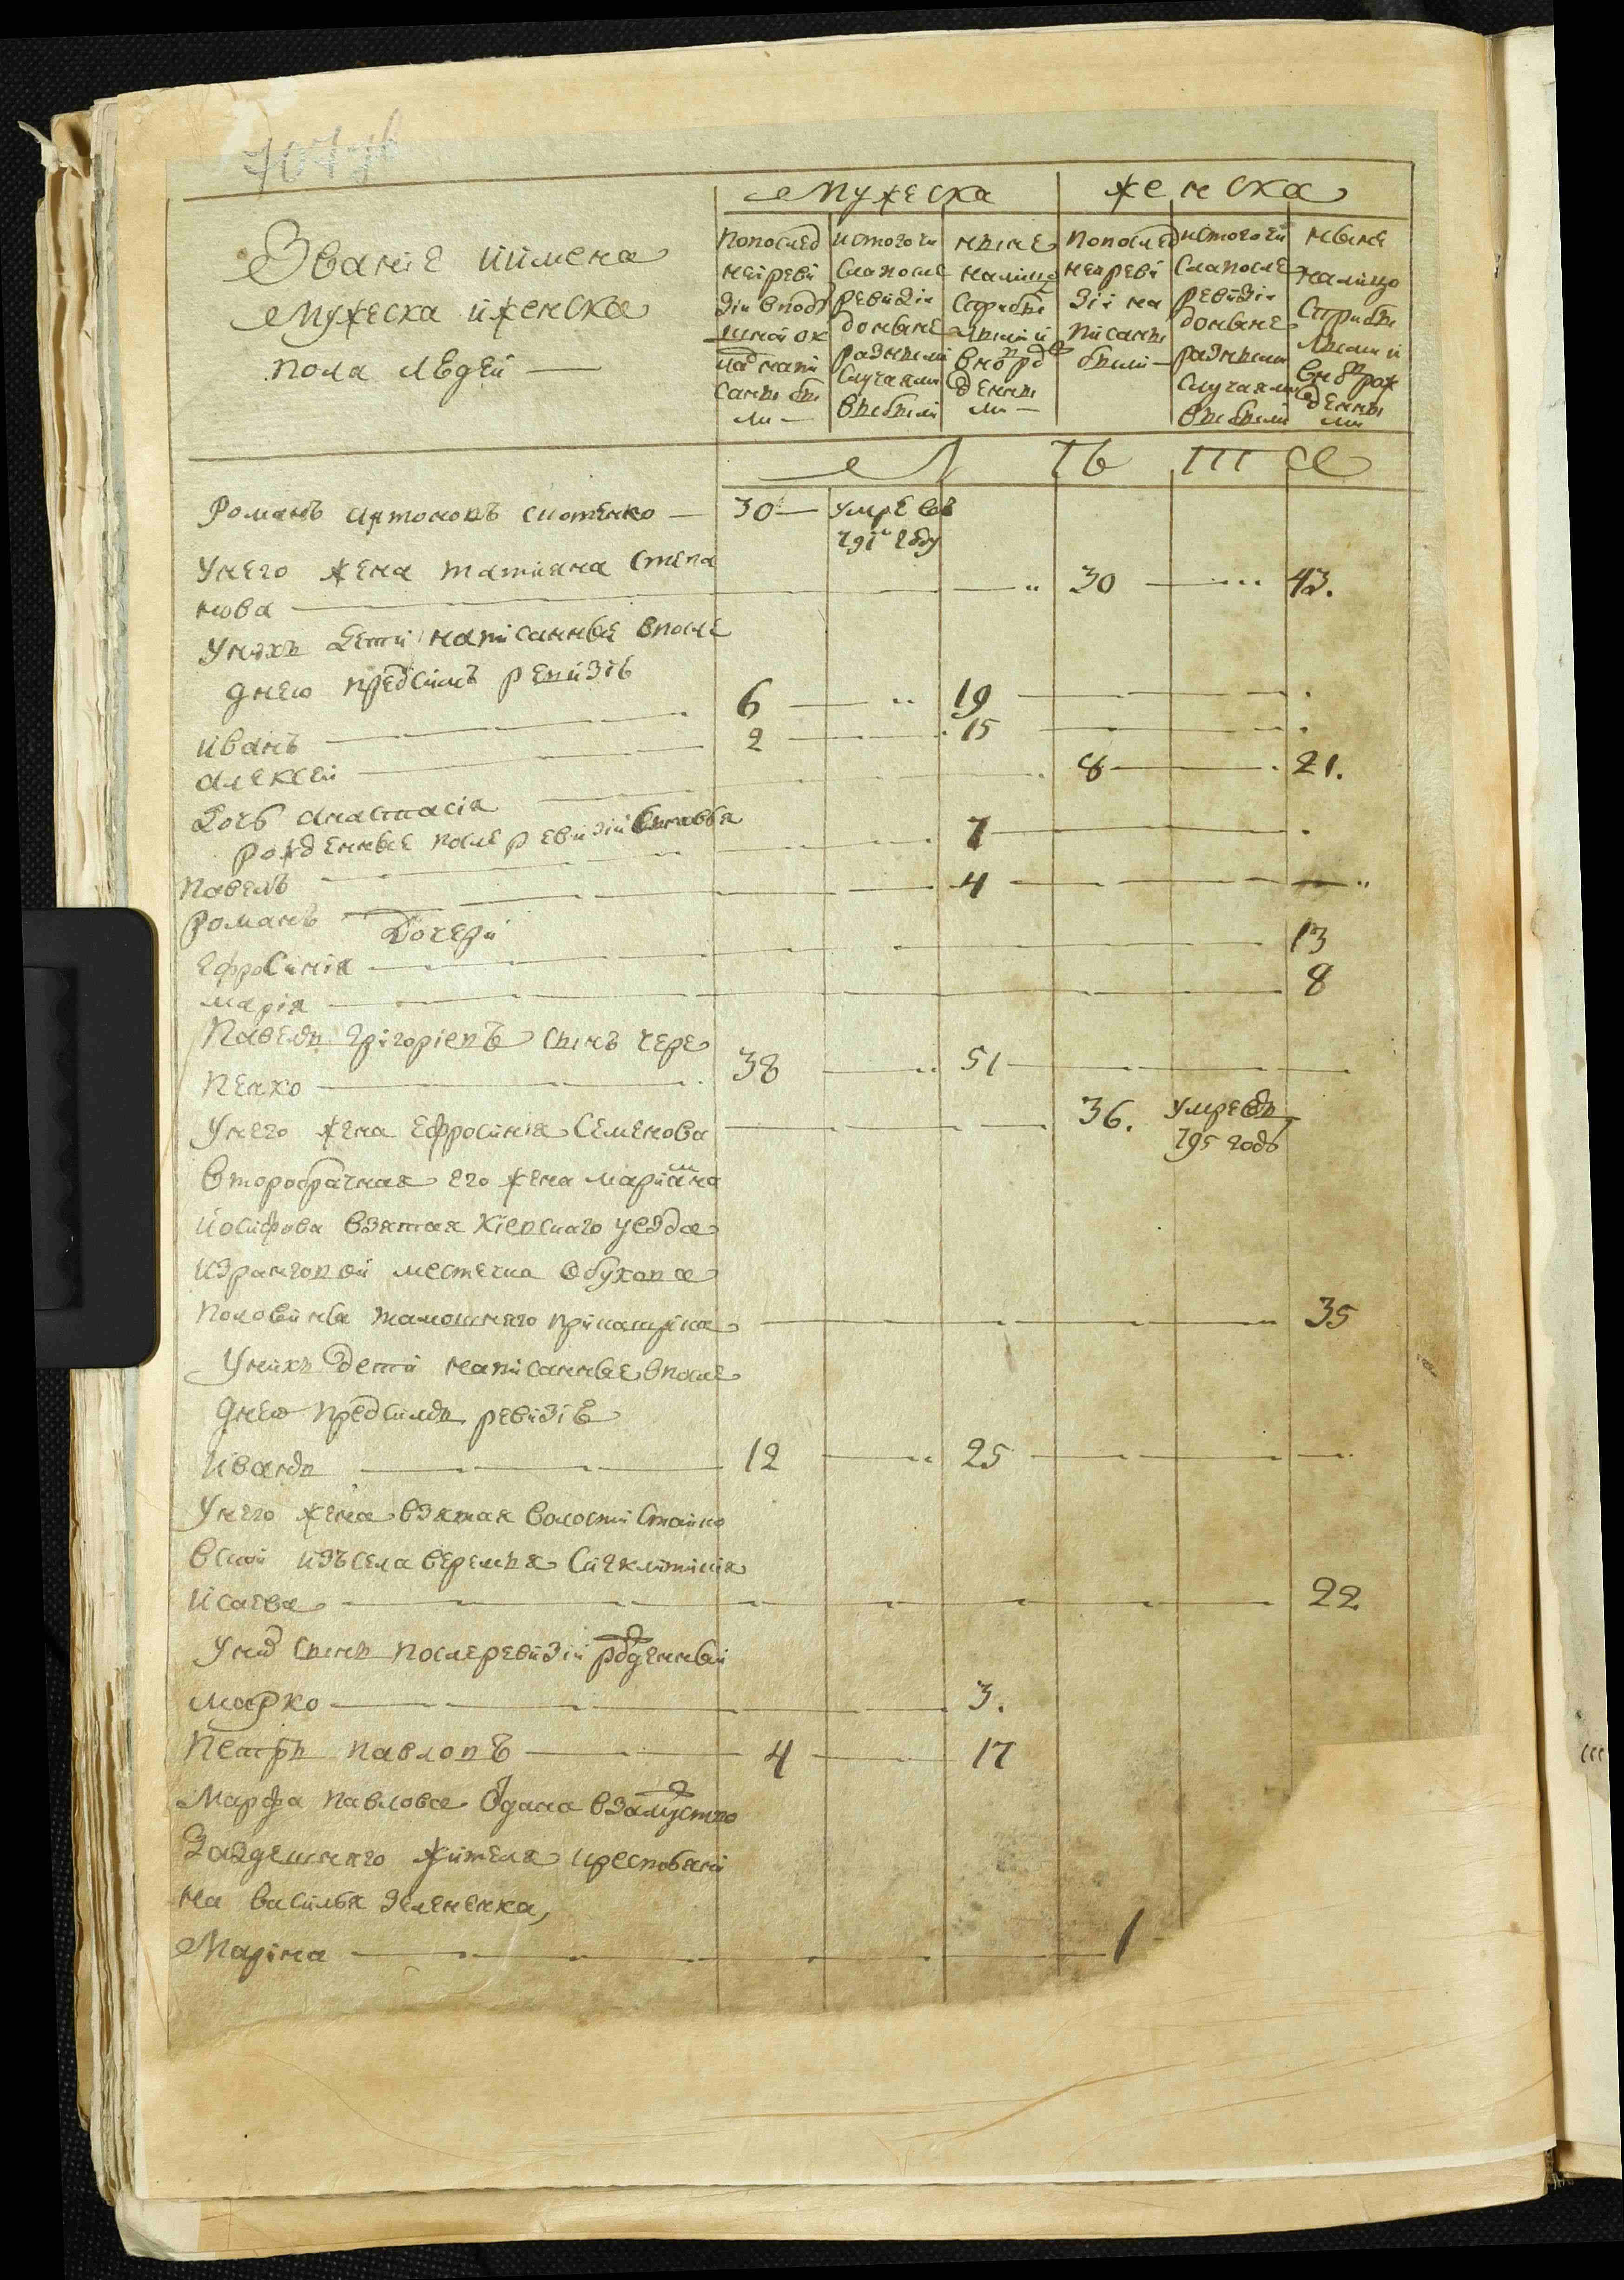 707 зв
Мужеска Женска
Званіе иимена
Мужеска иженска
пола людей —
попослед
ней реви
зіи вподу
шной ок
лад напи
саны бы
ли —
истогочи
сла после
ревизіи
доныне
разными
случаями
выбыли
ныне
налицо
сприбы
лыми и
вно рож
денны
ми —
попослед
ней реви
зіи на
писаны
были —
истогочи
сла после
ревизіи
доныне
разными
случаями
выбыли
ныне
налицо
сприбы
лыми и
вновь рож
денны
ми
Л Ѣ Т А
Романъ Антоновъ — 30 — умре въ
791м году
Унего жена Татияна Степа
нова — 30 — 43.
Унихъ дети написанные впосле
днею предсимъ ревизію
Иванъ — 6 — 19 —
Алексей — 2 — 15 —
Дочь Анастасія — 8 — 21.
рожденные после ревизіи сыновья
Павелъ — 7 —
Романъ — 4 —
Дочери
Ефросинія — 13
Марія — 8
Павелъ Григоріевъ сынъ Чере
пенко — 38 — 51 —
Унего жена Ефросинія Семенова — 36. умре въ
795 годъ
Второбрачная его жена Маріяна
Иосифова взятая Кіевскаго уезда
изранговой местечка Обухова
половины тамошняго — 35
Унихъ дети написанные впосле
днею предсимъ ревизію
Иванъ — 12 — 25 —
Унего жена взятая волости Стайко
вской изъсела Веремья Сиеклитинія
Исаева — 22
Унихъ сынъ послеревизіи рожденный
Марко — 3.
Петръ Павловъ — 4 — 17
Марфа Павлова отдана взамужство
Заздешняго жителя крестьяни
на Василья Зелененка,
Марина — 1